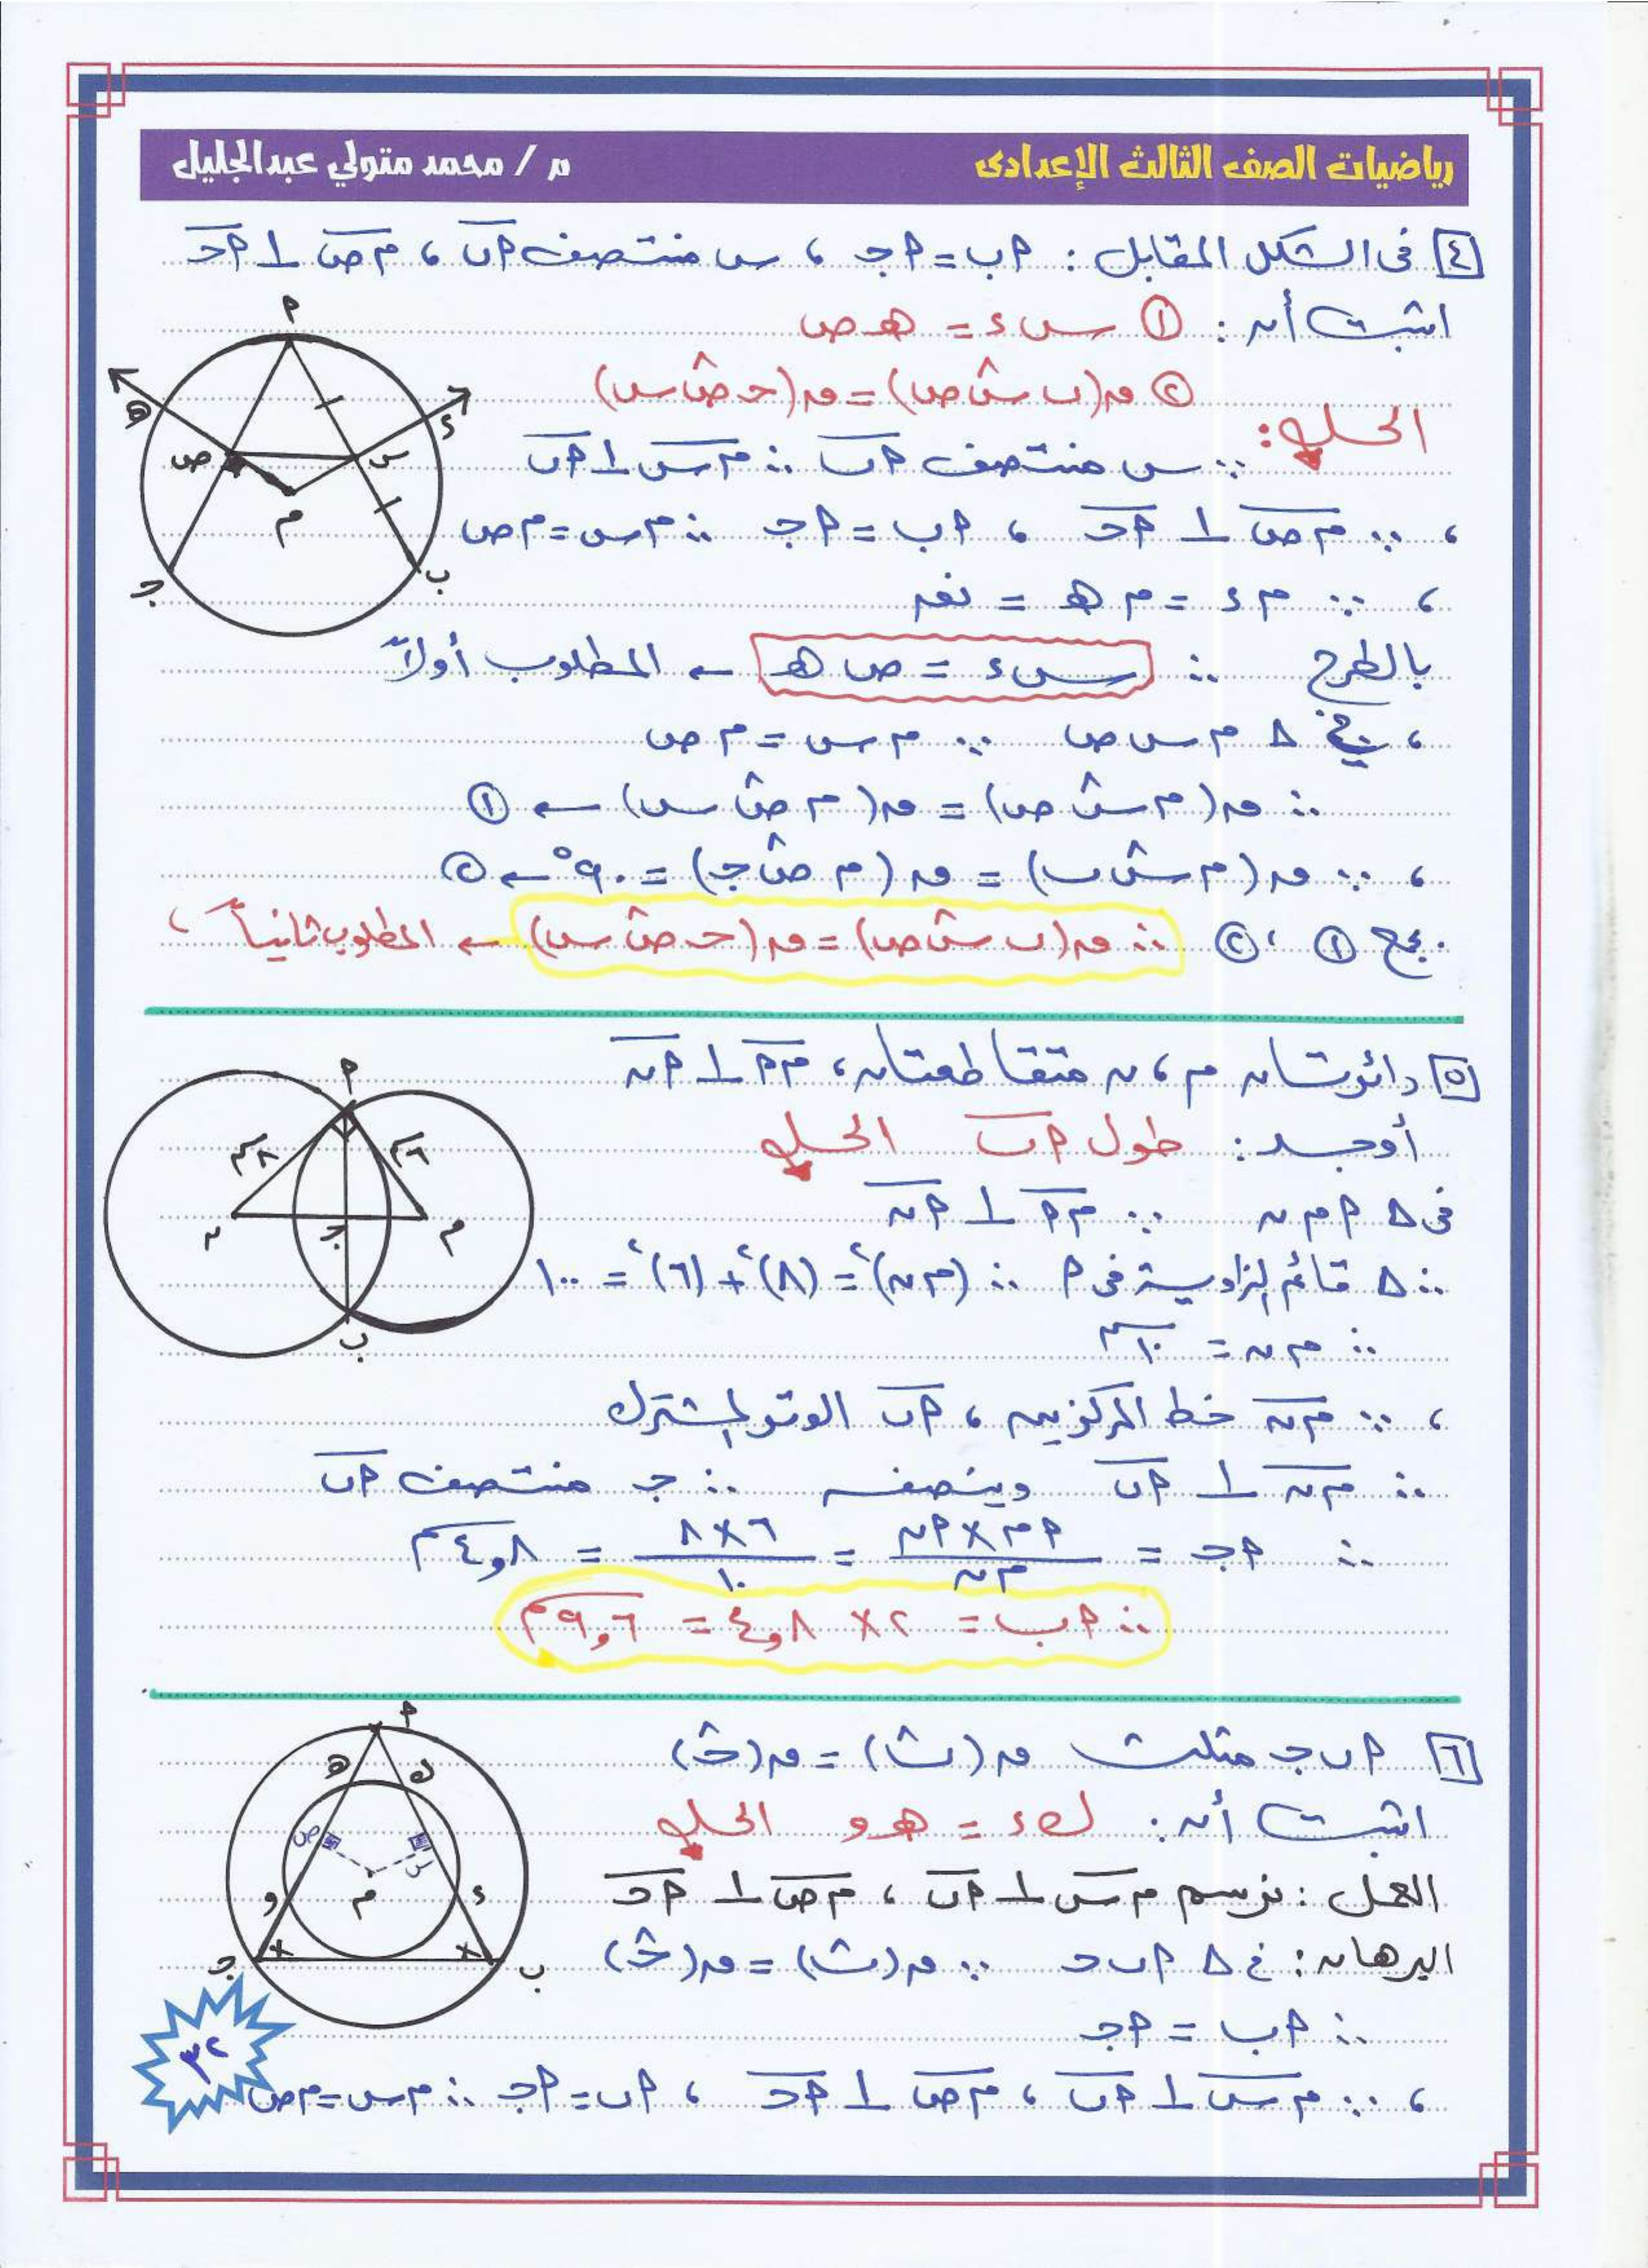 رياضيات الصف الثالث الإعدادى
م / محمد متولي عبدالجليل
[٤] فى الشكل المقابل : أب = أجـ ، س منتصف أب ، م ص ⊥ أحـ
اثبت أن : ① س ء = هـ ص
② ق(ب س ص) = ق(حـ ص س)
الحل :
∵ س منتصف أب ∴ م س ⊥ أب
، ∵ م ص ⊥ أحـ ، أب = أجـ ∴ م س = م ص
، ∵ م ء = م هـ = نق
بالطرح ∴ س ء = ص هـ ← المطلوب أولاً
، فى Δ م س ص ∵ م س = م ص
∴ ق(م س ص) = ق(م ص س) ← ①
، ∵ ق(م س ب) = ق(م ص جـ) = ٩٠° ← ②
بجمع ① ، ② ∴ ق(ب س ص) = ق(حـ ص س) ← المطلوب ثانياً
أ
ء
هـ
س
ص
م
ب
جـ
[٥] دائرتان م ، ن متقاطعتان ، م أ ⊥ أ ن
أوجد : طول أب الحل
فى Δ أ م ن ∵ م أ ⊥ أ ن
∴ Δ قائم الزاوية فى أ ∴ (م ن)² = (٨)² + (٦)² = ١٠٠
∴ م ن = ١٠ سم
، ∵ م ن خط المركزين ، أب الوتر المشترك
∴ م ن ⊥ أب وينصفه ∴ جـ منتصف أب
∴ أجـ = أم × أن / م ن = ٦ × ٨ / ١٠ = ٤,٨ سم
∴ أب = ٢ × ٤,٨ = ٩,٦ سم
أ
٨ سم
٦ سم
ن
جـ
م
ب
[٦] أ ب جـ مثلث ق(ب) = ق(حـ)
اثبت أن : ك ء = هـ و الحل
العمل : نرسم م س ⊥ أب ، م ص ⊥ أحـ
البرهان : فى Δ أ ب حـ ∵ ق(ب) = ق(حـ)
∴ أب = أجـ
، ∵ م س ⊥ أب ، م ص ⊥ أحـ ، أب = أجـ ∴ م س = م ص
أ
هـ
ك
ص
س
م
و
ء
جـ
ب
٣٢